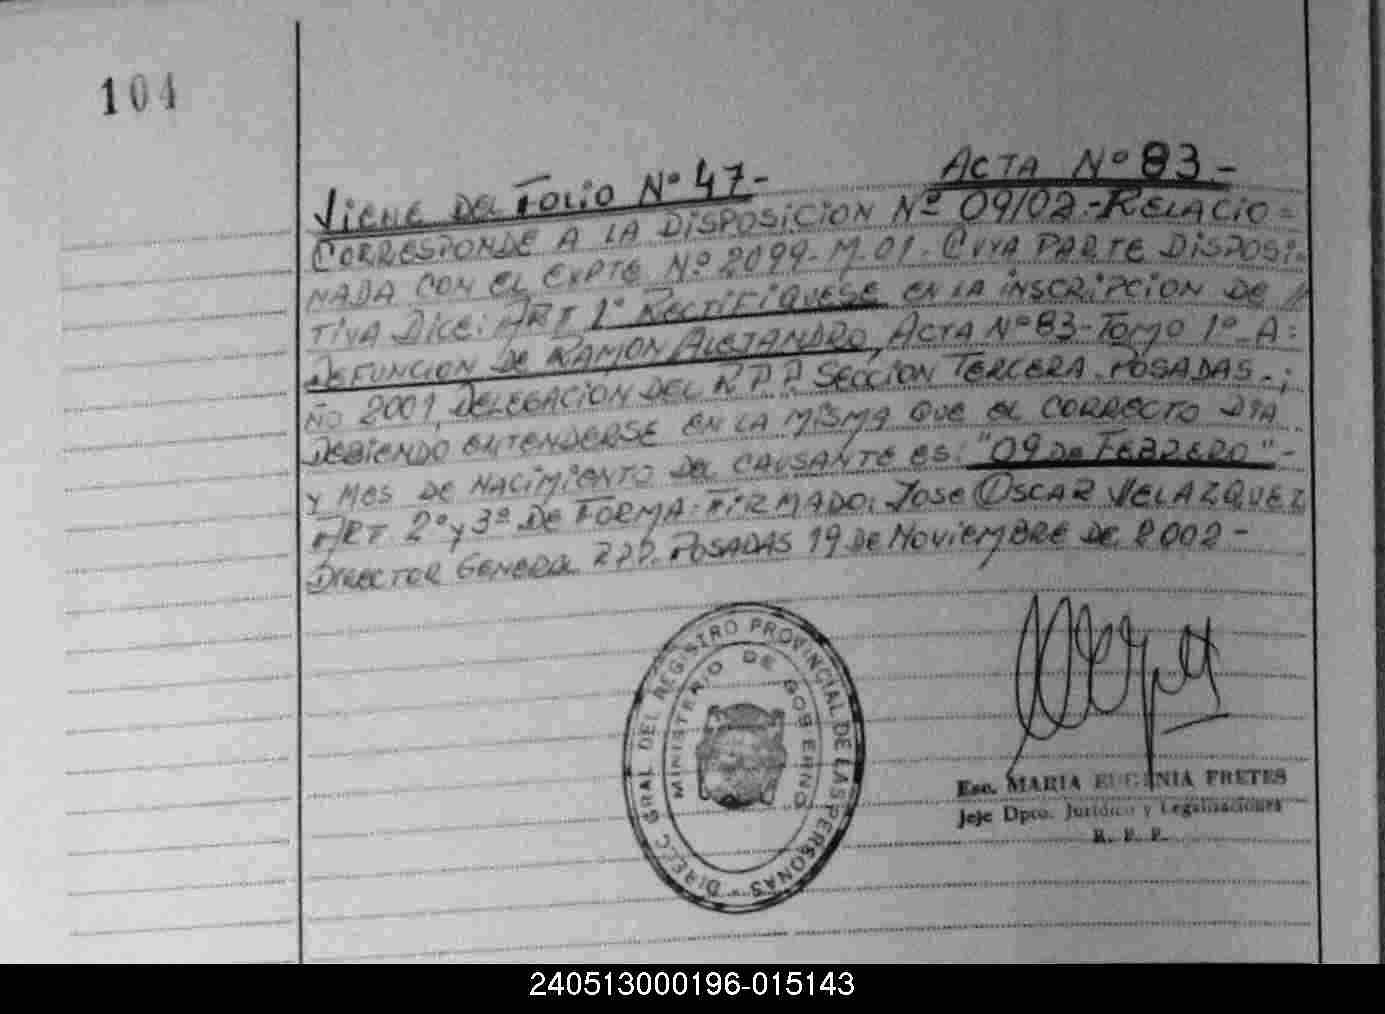 104
VIENE DEL FOLIO Nº 47- ACTA Nº 83-
CORRESPONDE A LA DISPOSICION Nº 09/02.-RELACIO=
NADA CON EL EXPTE Nº 2099-M-01. CUYA PARTE DISPOSI-
TIVA DICE: ART 1º RECTIFIQUESE EN LA INSCRIPCION DE //
DEFUNCION DE RAMON ALEJANDRO, ACTA Nº 83-TOMO 1º-A=
ÑO 2001, DELEGACION DEL R.P.P. SECCION TERCERA. POSADAS.-;
DEBIENDO ENTENDERSE EN LA MISMA QUE EL CORRECTO DIA
Y MES DE NACIMIENTO DEL CAUSANTE ES: "09 DE FEBRERO"-
ART 2º y 3º DE FORMA: FIRMADO: JOSE OSCAR VELAZQUEZ
DIRECTOR GENERAL R.P.P. POSADAS 19 DE NOVIEMBRE DE 2002-
DIREC. GRAL DEL REGISTRO PROVINCIAL DE LAS PERSONAS -
MINISTERIO DE GOBIERNO
Esc. MARIA EUGENIA FRETES
Jefe Dpto. Jurídico y Legalizaciones
R. P. P.
240513000196-015143